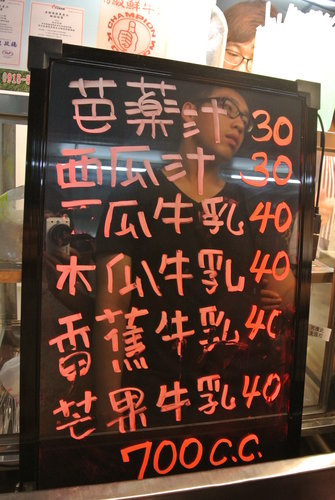 級鮮牛
CHAMPION
0915-5
芭藥汁 30
西瓜汁 30
瓜牛乳 40
木瓜牛乳 40
香蕉牛乳 40
芒果牛乳 40
700 C.C.